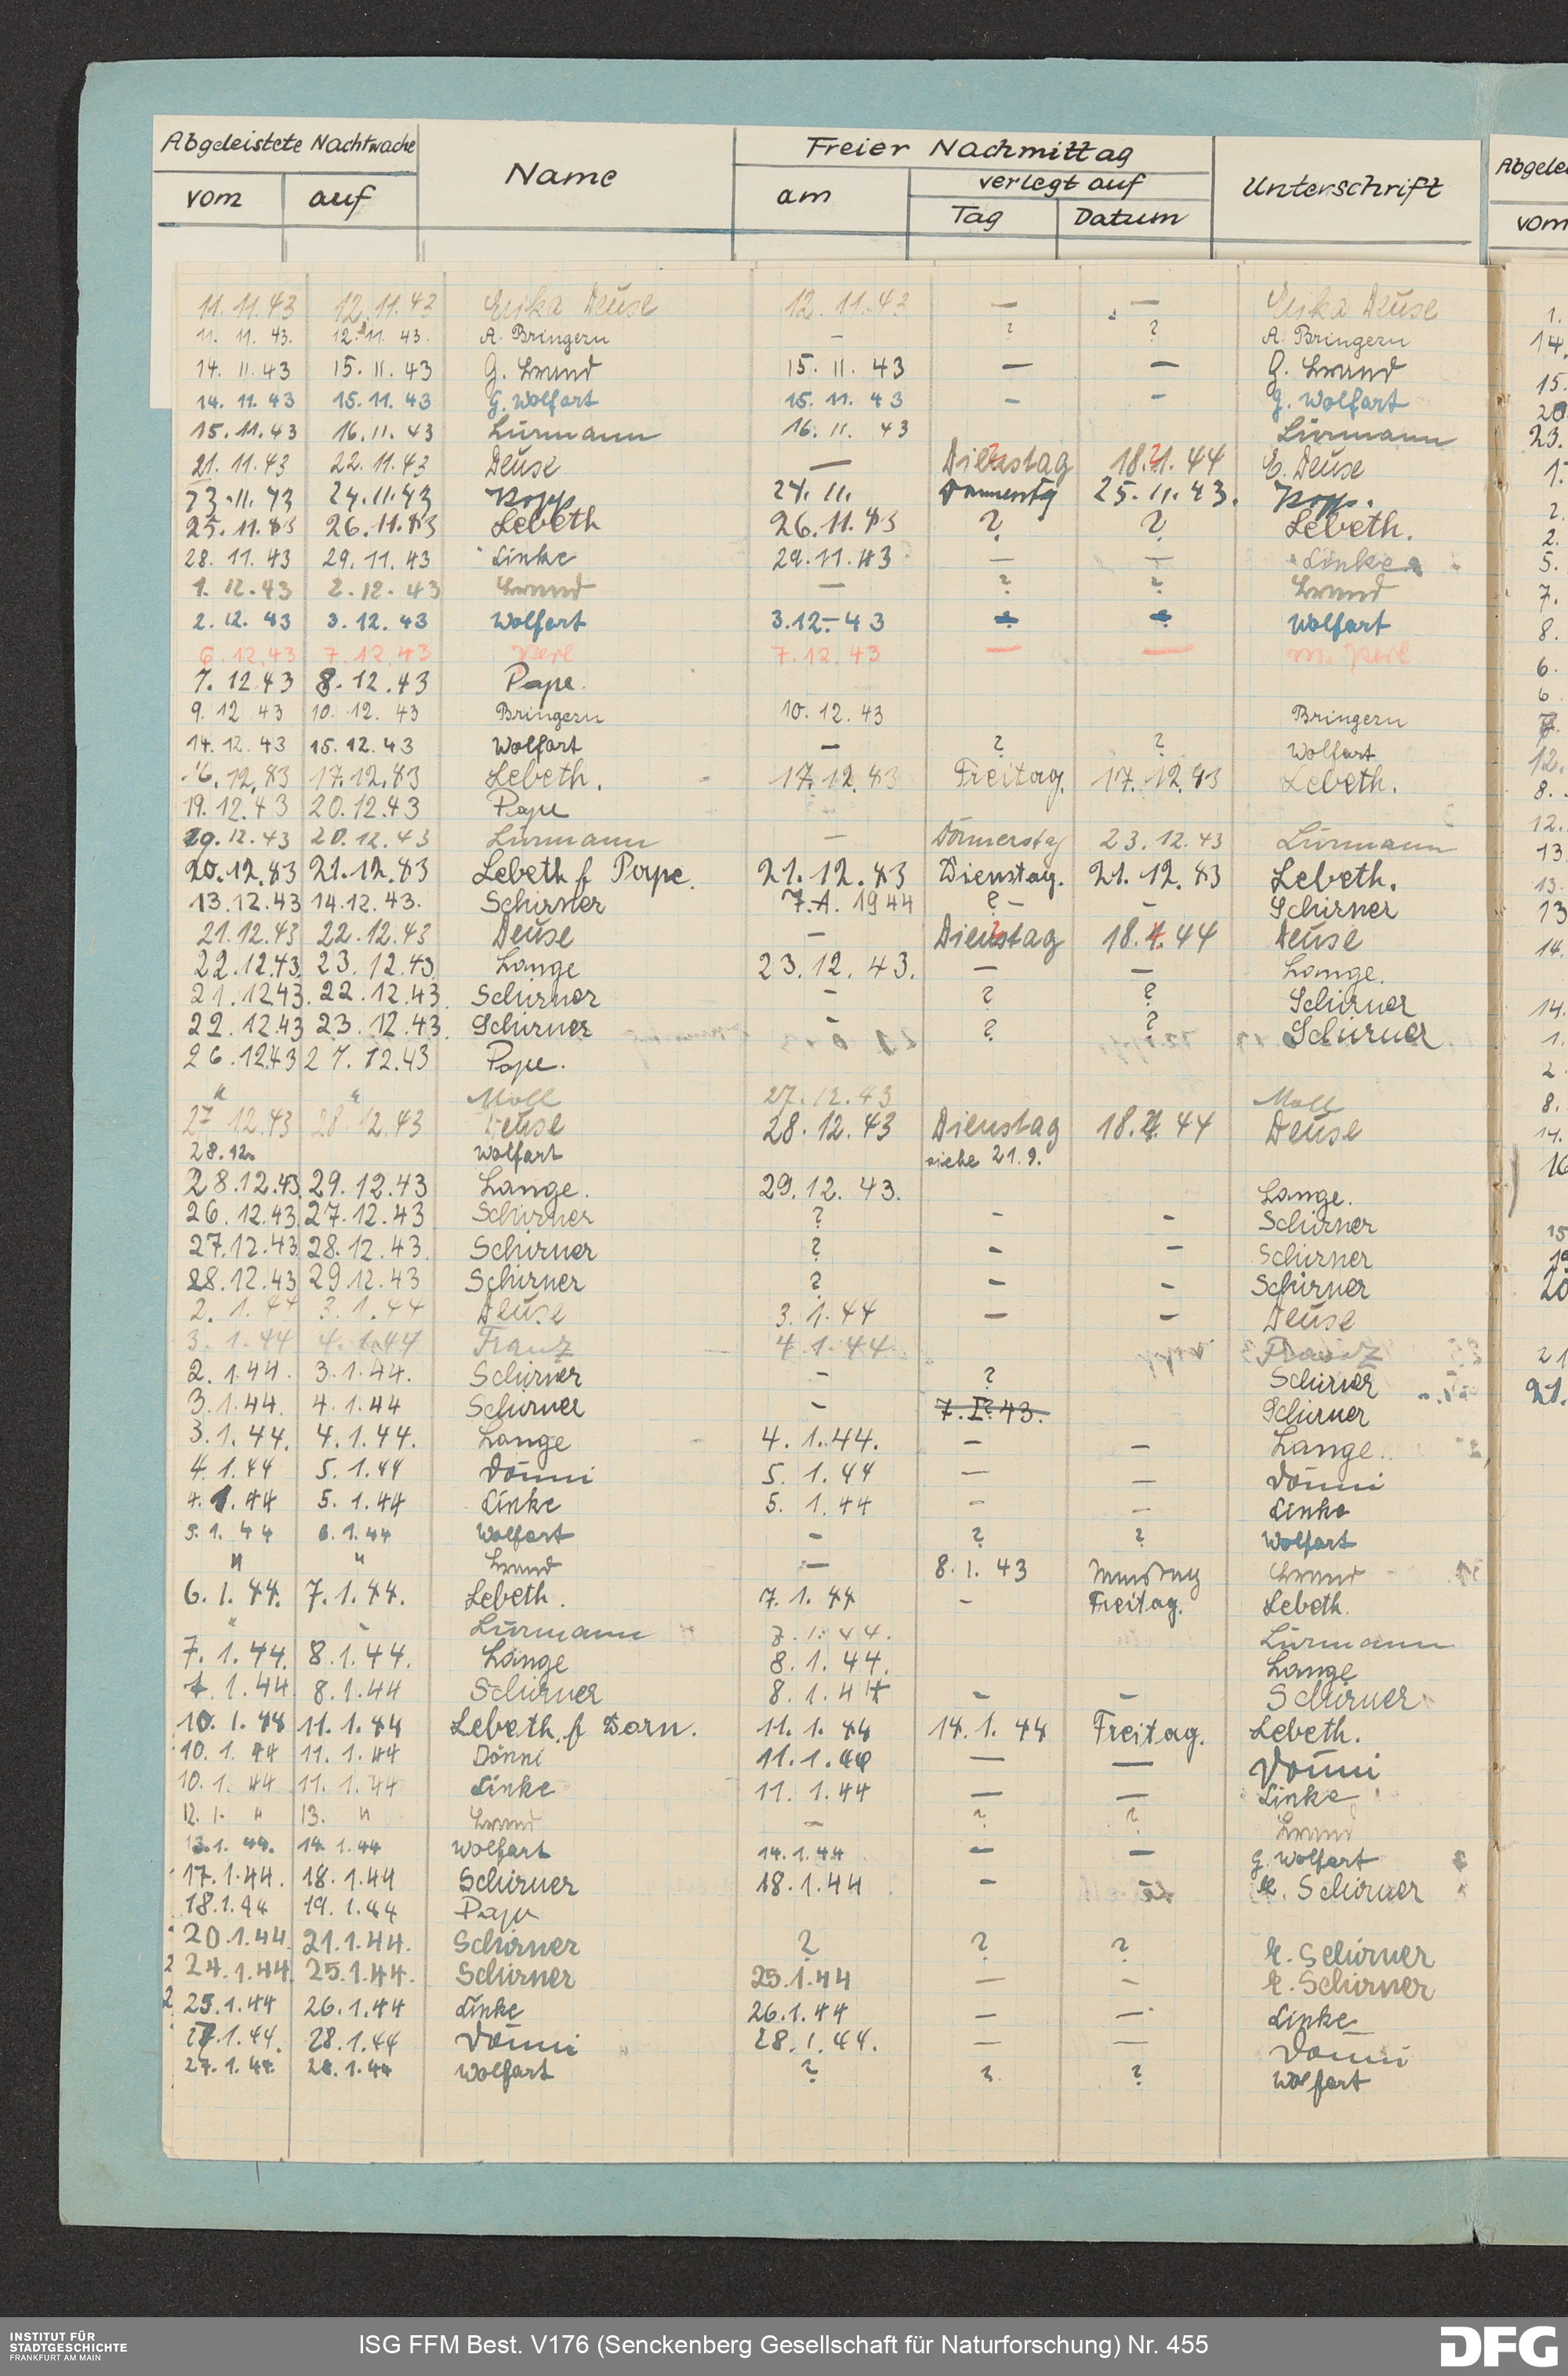 Abgeleistete Nachtwache Name Freier Nachmittag Unterschrift
vom auf am verlegt auf
Tag Datum
11.11.43 12.11.43 Erika Deuse 12.11.43 — — Erika Deuse
11. 11. 43. 12. 11. 43. A. Bringern — ? ? A. Bringern
14. 11. 43 15. 11. 43 G. 15. 11. 43 — — G.
14. 11. 43 15. 11. 43 G. Wolfart 15. 11. 43 — — G. Wolfart
15. 11. 43 16. 11. 43 Lürmann 16. 11. 43 Lürmann
21. 11. 43 22. 11. 43 Deuse — Dienstag 18. 44 E. Deuse
23. 11. 43 24. 11. 43 Kopp 24. 11. 25. 11. 43. Kopp.
25. 11. 43 26. 11. 43 Lebeth 26. 11. 43 ? ? Lebeth.
28. 11. 43 29. 11. 43 Linke 29. 11. 43 — — Linke
1. 12. 43 2. 12. 43 — ? ?
2. 12. 43 3. 12. 43 Wolfart 3. 12. 43 Wolfart
6. 12. 43 7. 12. 43 Perl 7. 12. 43 — — M. Perl
7. 12. 43 8. 12. 43 Pape.
9. 12 43 10. 12. 43 Bringern 10. 12. 43 Bringern
14. 12. 43 15. 12. 43 Wolfart — ? ? Wolfart
16. 12. 43 17. 12. 43 Lebeth. 17. 12. 43 Freitag. 17. 12. 43 Lebeth.
19. 12. 43 20. 12. 43 Pape —
20. 12. 43 Lürmann — Donnerstg 23. 12. 43 Lürmann
20. 12. 43 21. 12. 43 Lebeth f Pape. 21. 12. 43 Dienstag. 21. 12. 43 Lebeth.
13. 12. 43 14. 12. 43. Schirner 7. 1. 1944 ? — — Schirner
21. 12. 43 22. 12. 43 Deuse — Dienstag 18. 44 Deuse
22. 12. 43. 23. 12. 43. Lange 23. 12. 43. — — Lange.
21. 12 43. 22. 12. 43. Schirner — ? ? Schirner
22. 12. 43 23. 12. 43 Schirner — ? ? Schirner
26. 12 43 27. 12. 43 Pape.
" " Moll 27. 12. 43 Moll
27 12. 43 28. 12. 43 Deuse 28. 12. 43 Dienstag 18. 44 Deuse
28. 12. Wolfart siehe 21. 9.
28. 12. 43. 29. 12. 43 Lange. 29. 12. 43. Lange.
26. 12. 43. 27. 12. 43 Schirner ? — — Schirner
27. 12. 43 28. 12. 43. Schirner ? — — Schirner
28. 12. 43 29 12. 43 Schirner ? — — Schirner
2. 1. 44 3. 1. 44 Deuse 3. 1. 44 — — Deuse
3. 1. 44 4. 1. 44 Franz 4. 1. 44. Franz
2. 1. 44. 3. 1. 44. Schirner — ? Schirner
3. 1. 44. 4. 1. 44 Schirner — 7. I. 43. Schirner
3. 1. 44. 4. 1. 44. Lange 4. 1. 44. — — Lange.
4. 1. 44 5. 1. 44 Dönni 5. 1. 44 — — Dönni
4. 1. 44 5. 1. 44 Linke 5. 1. 44 — — Linke
5. 1. 44 6. 1. 44 Wolfart — ? ? Wolfart
" " — 8. 1. 43
6. 1. 44. 7. 1. 44. Lebeth. 7. 1. 44 — Freitag. Lebeth.
" " Lürmann 7. 1. 44. Lürmann
7. 1. 44. 8. 1. 44. Lange 8. 1. 44. Lange
7. 1. 44 8. 1. 44 Schirner 8. 1. 44 — — Schirner
10. 1. 44 11. 1. 44 Lebeth. f Dorn. 11. 1. 44 14. 1. 44 Freitag. Lebeth.
10. 1. 44 11. 1. 44 Dönni 11. 1. 44 — — Dönni
10. 1. 44 11. 1. 44 Linke 11. 1. 44 — — Linke
12. 1. " 13. " — ? ?
13. 1. 44. 14 1. 44 Wolfart 14. 1. 44 — — G. Wolfart
17. 1. 44. 18. 1. 44 Schirner 18. 1. 44 — — Schirner
18. 1. 44 19. 1. 44 Pape
20. 1. 44. 21. 1. 44. Schirner ? ? ? Schirner
24. 1. 44. 25. 1. 44. Schirner 25. 1. 44 — — Schirner
25. 1. 44 26. 1. 44 Linke 26. 1. 44 — — Linke
27. 1. 44. 28. 1. 44 Dönni 28. 1. 44. — — Dönni
27. 1. 44. 28. 1. 44 Wolfart ? ? ? Wolfart
INSTITUT FÜR
STADTGESCHICHTE
FRANKFURT AM MAIN
ISG FFM Best. V176 (Senckenberg Gesellschaft für Naturforschung) Nr. 455
DFG